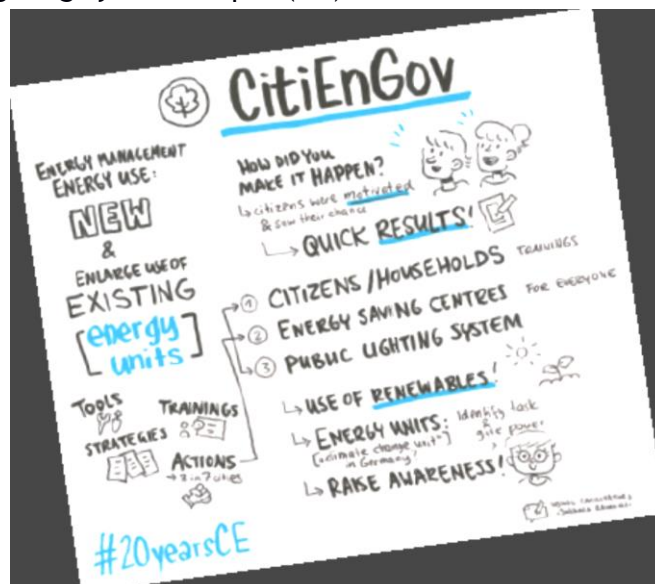 CitiEnGov
ENERGY MANAGEMENT
ENERGY USE:
NEW
&
ENLARGE USE OF
EXISTING
[energy
units]
TOOLS
STRATEGIES
TRAININGS
ACTIONS
#20yearsCE
HOW DID YOU
MAKE IT HAPPEN?
↳ citizens were motivated
& saw their chance
↳ QUICK RESULTS!
① CITIZENS / HOUSEHOLDS TRAININGS
② ENERGY SAVING CENTRES FOR EVERYONE
③ PUBLIC LIGHTING SYSTEM
↳ USE OF RENEWABLES!
↳ ENERGY UNITS: Identify task
["climate change unit" &
in Germany] give power
↳ RAISE AWARENESS!